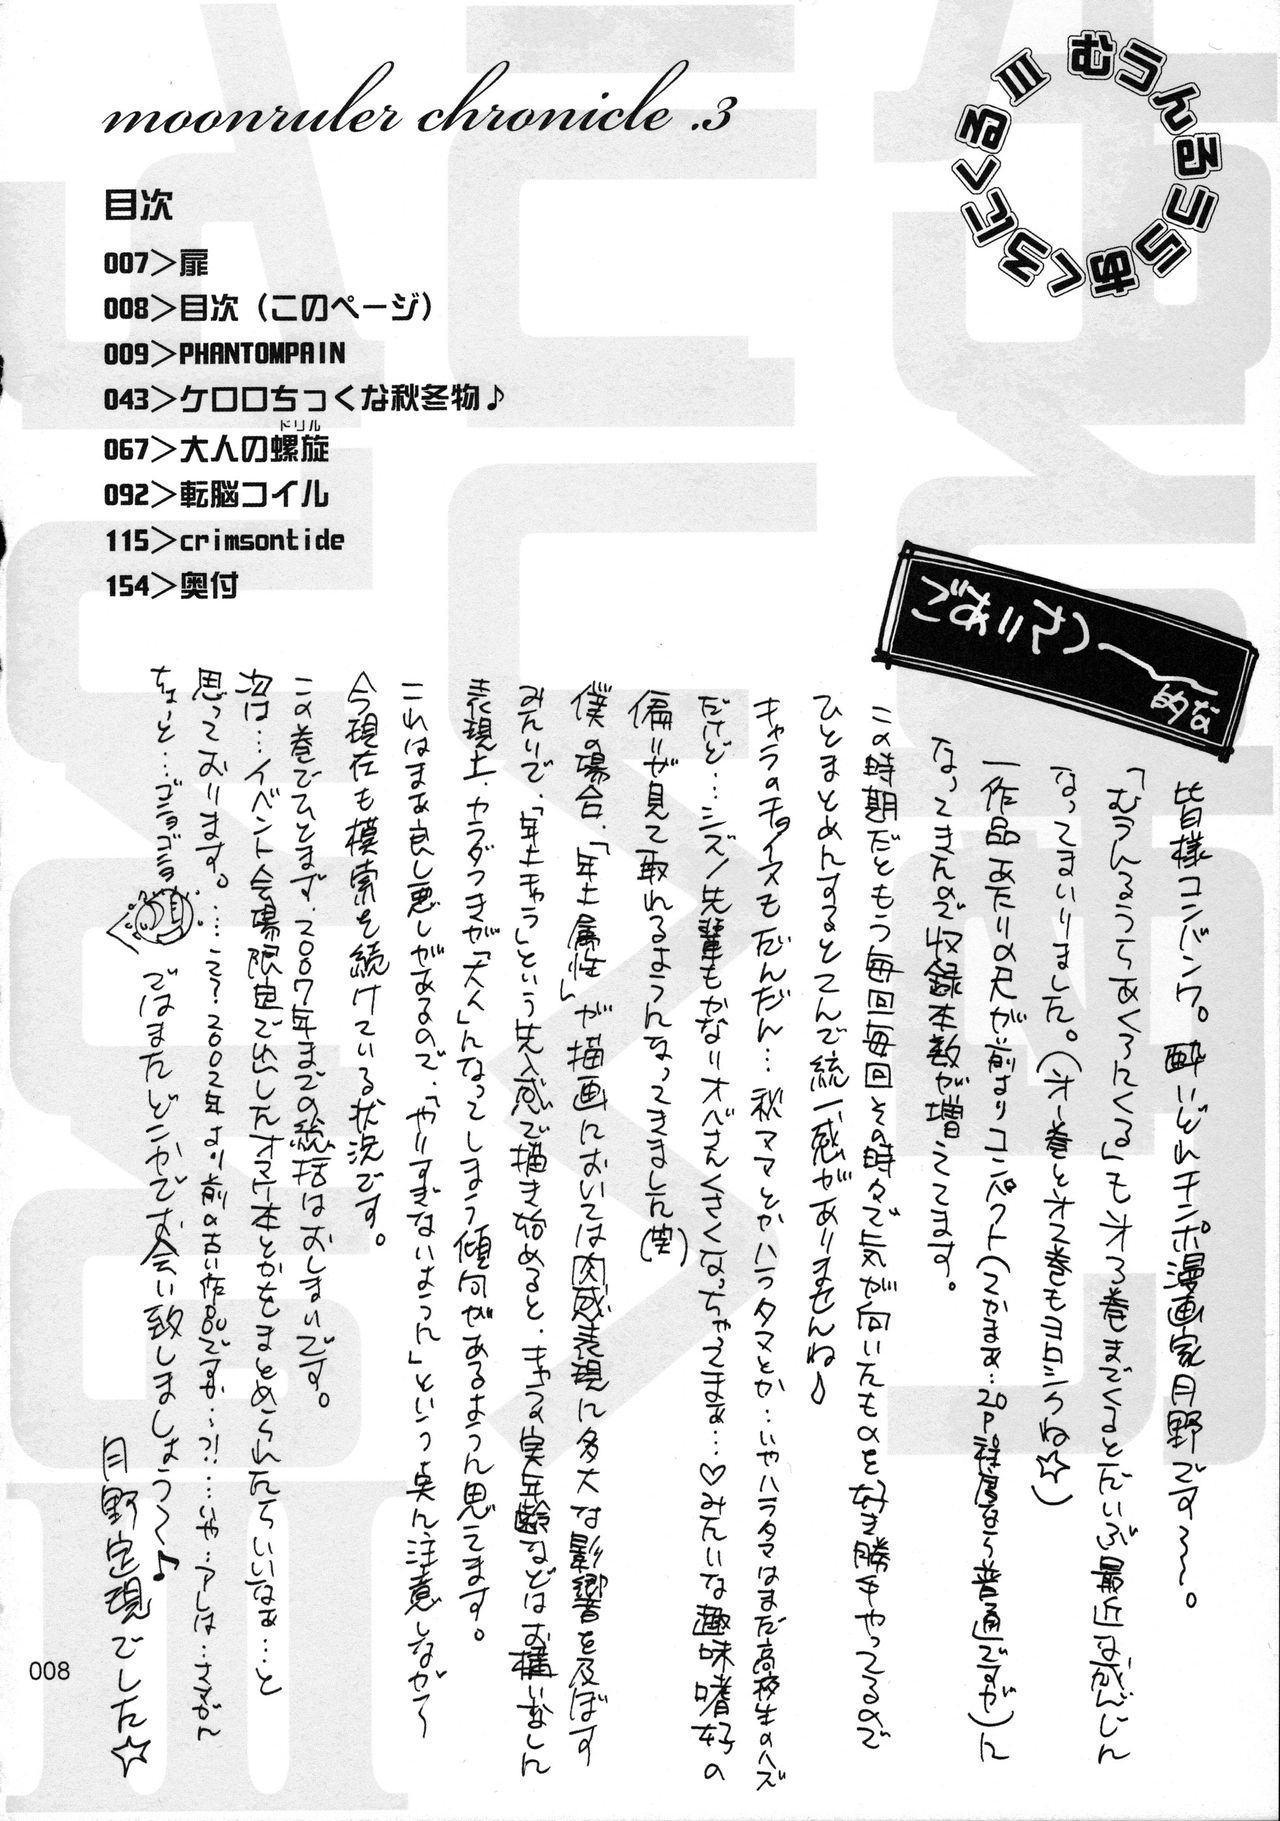 moonruler chronicle .3
むうんるうらあくろにくるⅢ
目次
007＞扉
008＞目次（このページ）
009＞PHANTOMPAIN
043＞ケロロちっくな秋冬物♪
067＞大人の螺旋
ドリル
092＞転脳コイル
115＞crimsontide
154＞奥付
ごあいさつー
的な
皆様コンバンワ。酔いどれチンポ漫画家月野です〜〜。
「むうんるうらあくろにくる」もオ3巻まででくるとだいぶ最近なかんじに
なってまいりました。（オー巻とオ2巻もヨロシクね☆）
一作品あたりの尺が前よりコンパクト（つかまぁ…20P程度なら普通ですが）に
なってきたので収録本数が増えてます。
この時期だともう毎回毎回その時々で気が向いたものを好き勝手やってるので
ひとまとめにするとてんで統一感がありませんね♪
キャラのチョイスもだんだん…秋ママとかハラタマとか…いやハラタマはまだ高校生のハズ
だけど…シズノ先輩もかなりオバさんくさくなっちゃってまぁ…♡みたいな趣味嗜好の
偏りが見て取れるようになってきました（笑）
僕の場合、「年上属性」が描画においては肉感表現に多大な影響を及ぼす
みたいで、「年上キャラ」という先入感で描き始めると、キャラの実年齢などはお構いなしに
表現上、カラダつきが「大人」になってしまう傾向があるように思えてます。
これはまぁ良し悪しがあるので、「やりすぎないように」という点に注意しながら〜
今現在も模索を続けている状況です。
この巻でひとまず、2007年までの総括はおしまいです。
次は…イベント会場限定で出したオマケ本とかをまとめられたらいいなぁ…と
思っております。……え？2002年より前の古い作品ですか…?!…いや…アレは…さすがに
ちょっと…ゴニョゴニョ
ではまたどこかでお会い致しましょう〜♪
月野定規でした☆
008